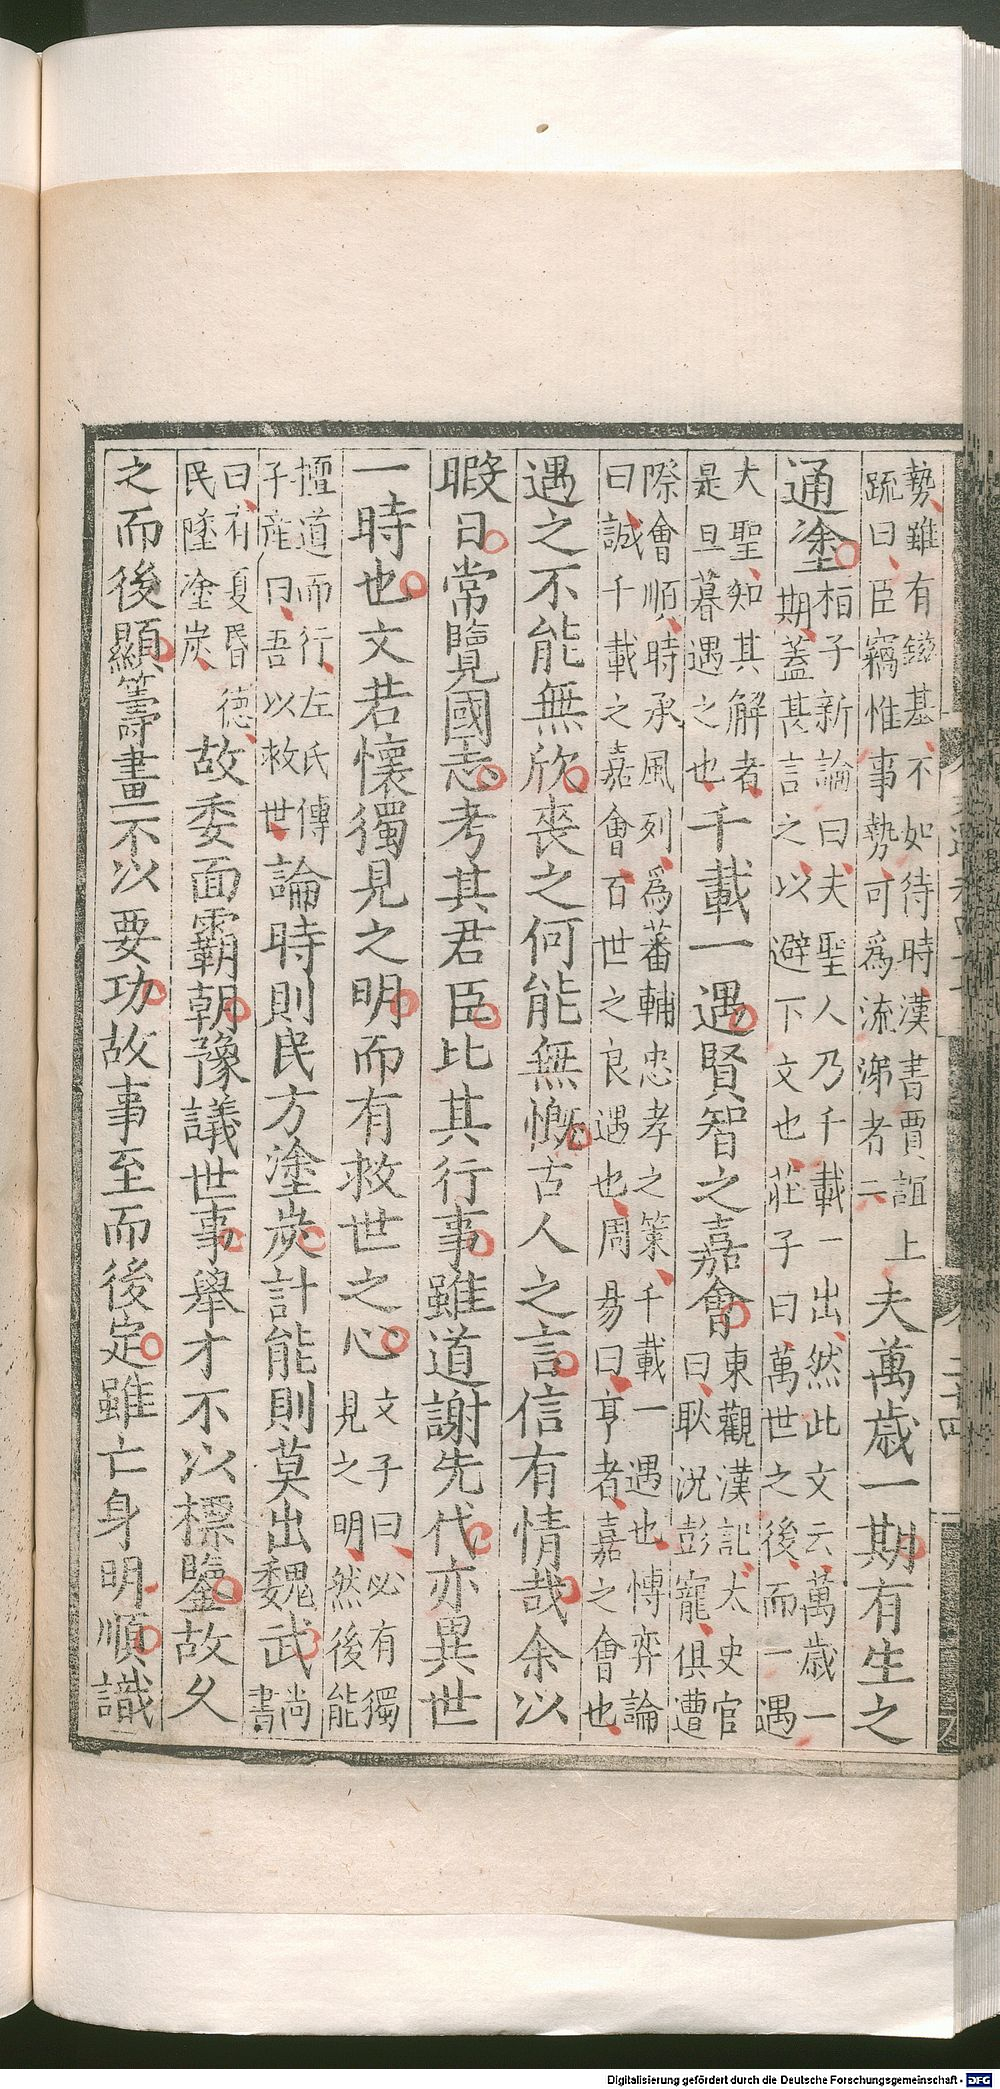 勢雖有鎡基不如待時漢書賈誼上
疏曰臣竊惟事勢可爲流涕者二夫萬歲一期有生之
通塗桓子新論曰夫聖人乃千載一出然此文云萬歲一
期蓋甚言之以避下文也莊子曰萬世之後而一遇
大聖知其解者
是旦暮遇之也千載一遇賢智之嘉會東觀漢記太史官
曰耿況彭寵俱遭
際會順時承風列爲蕃輔忠孝之策千載一遇也愽弈論
曰誠千載之嘉會百世之良遇也周易曰亨者嘉之會也
遇之不能無欣喪之何能無慨古人之言信有情哉余以
暇日常覽國志考其君臣比其行事雖道謝先代亦異世
一時也文若懷獨見之明而有救世之心文子曰必有獨
見之明然後能
擅道而行左氏傳
子產曰吾以救世論時則民方塗炭計能則莫出魏武尚
書
曰有夏昏德
民墜塗炭故委面霸朝豫議世事舉才不以標鑒故久
之而後顯籌畫不以要功故事至而後定雖亡身明順識
二十四
Digitalisierung gefördert durch die Deutsche Forschungsgemeinschaft - DFG